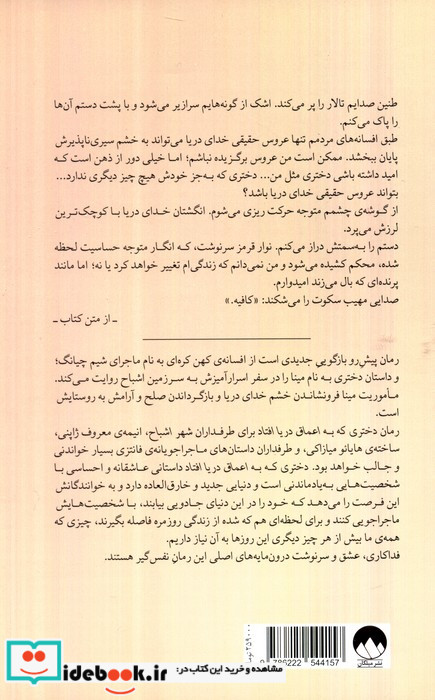 طنین صدایم تالار را پر می‌کند. اشک از گونه‌هایم سرازیر می‌شود و با پشت دستم آن‌ها
را پاک می‌کنم.
طبق افسانه‌های مردمم تنها عروس حقیقی خدای دریا می‌تواند به خشم سیری‌ناپذیرش
پایان ببخشد. ممکن است من عروس برگزیده نباشم؛ اما خیلی دور از ذهن است که
امید داشته باشی دختری مثل من... دختری که به‌جز خودش هیچ چیز دیگری ندارد...
بتواند عروس حقیقی خدای دریا باشد؟
از گوشه‌ی چشمم متوجه حرکت ریزی می‌شوم. انگشتان خدای دریا با کوچک‌ترین
لرزش می‌پرد.
دستم را به‌سمتش دراز می‌کنم. نوار قرمز سرنوشت، که انگار متوجه حساسیت لحظه
شده، محکم کشیده می‌شود و من نمی‌دانم که زندگی‌ام تغییر خواهد کرد یا نه؛ اما مانند
پرنده‌ای که بال می‌زند امیدوارم.
صدایی مهیب سکوت را می‌شکند: «کافیه.»
ـ از متن کتاب ـ
رمان پیش‌رو بازگویی جدیدی است از افسانه‌ی کهن کره‌ای به نام ماجرای شیم چیانگ؛
و داستان دختری به نام مینا را در سفر اسرارآمیزش به سرزمین اشباح روایت می‌کند.
مأموریت مینا فرونشاندن خشم خدای دریا و بازگرداندن صلح و آرامش به روستایش
است.
رمان دختری که به اعماق دریا افتاد برای طرفداران شهر اشباح، انیمه‌ی معروف ژاپنی،
ساخته‌ی هایائو میازاکی، و طرفداران داستان‌های ماجراجویانه‌ی فانتزی بسیار خواندنی
و جالب خواهد بود. دختری که به اعماق دریا افتاد داستانی عاشقانه و احساسی با
شخصیت‌هایی به‌یادماندنی است و دنیایی جدید و خارق‌العاده دارد و به خوانندگانش
این فرصت را می‌دهد که خود را در این دنیای جادویی بیابند، با شخصیت‌هایش
ماجراجویی کنند و برای لحظه‌ای هم که شده از زندگی روزمره فاصله بگیرند، چیزی که
همه‌ی ما بیش از هر چیز دیگری این روزها به آن نیاز داریم.
فداکاری، عشق و سرنوشت درون‌مایه‌های اصلی این رمان نفس‌گیر هستند.
نشر میلکان
۲۵۹۰۰۰ تومان
9 786222 544157
مشاهده و خرید این کتاب در:
idebook.ir